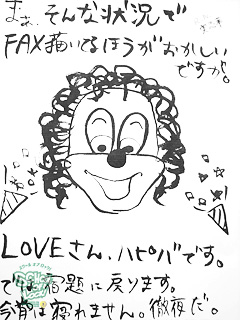 まぁ、そんな状況で
FAX描いてるほうがおかしい
ですが。
LOVEさん、ハピバです。
では宿題に戻ります。
今宵は寝れません。徹夜だ。